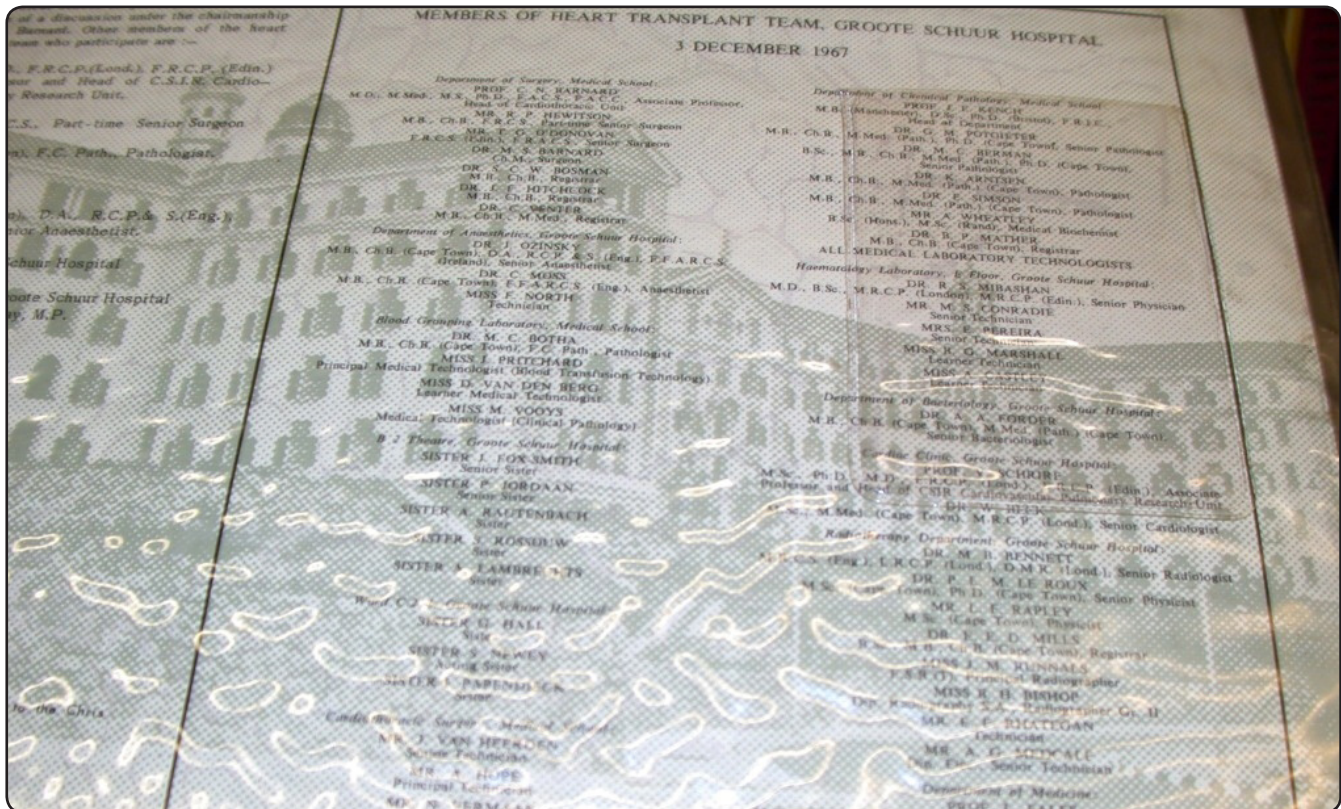 of a discussion under the chairmanship
Barnard. Other members of the heart
team who participate are :—
F.R.C.P.(Lond.), F.R.C.P. (Edin.)
sor and Head of C.S.I.R. Cardio-
y Research Unit.
C.S., Part-time Senior Surgeon
F.C. Path., Pathologist.
D.A., R.C.P.& S.(Eng.),
nior Anaesthetist.
Schuur Hospital
oote Schuur Hospital
ay, M.P.
to the Chris
MEMBERS OF HEART TRANSPLANT TEAM, GROOTE SCHUUR HOSPITAL
3 DECEMBER 1967
Department of Surgery, Medical School:
PROF. C. N. BARNARD
M.D., M.Med., M.S., Ph.D., F.A.C.S., F.A.C.C. Associate Professor,
Head of Cardiothoracic Unit
MR. R. P. HEWITSON
M.B., Ch.B., F.R.C.S., Part-time Senior Surgeon
MR. T. G. O'DONOVAN
F.R.C.S. (Edin.), F.R.A.C.S., Senior Surgeon
DR. M. S. BARNARD
Ch.M., Surgeon
DR. S. C. W. BOSMAN
M.B., Ch.B., Registrar
DR. J. F. HITCHCOCK
M.B., Ch.B., Registrar
DR. C. VENTER
M.B., Ch.B., M.Med., Registrar
Department of Anaesthetics, Groote Schuur Hospital:
DR. J. OZINSKY
M.B., Ch.B. (Cape Town), D.A., R.C.P. & S. (Eng.), F.F.A.R.C.S.
(Ireland), Senior Anaesthetist
DR. C. MOSS
M.B., Ch.B. (Cape Town), F.F.A.R.C.S. (Eng.), Anaesthetist
MISS F. NORTH
Technician
Blood Grouping Laboratory, Medical School:
DR. M. C. BOTHA
M.B., Ch.B. (Cape Town), F.C. Path., Pathologist
MISS J. PRITCHARD
Principal Medical Technologist (Blood Transfusion Technology)
MISS D. VAN DEN BERG
Learner Medical Technologist
MISS M. VOOYS
Medical Technologist (Clinical Pathology)
B 2 Theatre, Groote Schuur Hospital:
SISTER J. FOX-SMITH
Senior Sister
SISTER P. JORDAAN
Senior Sister
SISTER A. RAUTENBACH
Sister
SISTER ROSSOUW
Sister
SISTER
Sister
Ward C-2 Groote Schuur Hospital:
SISTER G. HALL
Sister
SISTER S. NEWEY
Acting Sister
SISTER PAPENDIECK
Sister
Surgery, Medical School:
MR. J. VAN HEERDEN
Senior Technician
MR. A. HOPE
Principal Technician
Department of Chemical Pathology, Medical School
PROF. J. E. KENCH
M.B. (Manchester), D.Sc., Ph.D. (Bristol), F.R.I.C.,
Head of Department
DR. G. M. POTGIETER
M.B., Ch.B., M.Med. (Path.), Ph.D. (Cape Town), Senior Pathologist
DR. M. C. BERMAN
B.Sc., M.B., Ch.B., M.Med. (Path.), Ph.D. (Cape Town),
Senior Pathologist
DR. K. ARNTSEN
M.B., Ch.B., M.Med. (Path.) (Cape Town), Pathologist
DR. E. SIMSON
M.B., Ch.B., M.Med. (Path.) (Cape Town), Pathologist
MR. A. WHEATLEY
B.Sc. (Hons.), M.Sc. (Rand), Medical Biochemist
DR. B. P. MATHER
M.B., Ch.B. (Cape Town), Registrar
ALL MEDICAL LABORATORY TECHNOLOGISTS
Haematology Laboratory, E Floor, Groote Schuur Hospital:
DR. R. S. MIBASHAN
M.D., B.Sc., M.R.C.P. (London), M.R.C.P. (Edin.), Senior Physician
MR. M. S. CONRADIE
Senior Technician
MRS. E. PEREIRA
Senior Technician
MISS R. G. MARSHALL
Learner Technician
MISS A.
Learner Technician
Department of Bacteriology, Groote Schuur Hospital:
DR. A. A. FORDER
M.B., Ch.B. (Cape Town), M.Med. (Path.) (Cape Town),
Senior Bacteriologist
Cardiac Clinic, Groote Schuur Hospital:
PROF. SCHRIRE
M.Sc., Ph.D., M.D., F.R.C.P. (Lond.), F.R.C.P. (Edin.), Associate
Professor and Head of CSIR Cardiovascular Pulmonary Research Unit
DR. W. BECK
M.Med. (Cape Town), M.R.C.P. (Lond.), Senior Cardiologist
Radiotherapy Department, Groote Schuur Hospital:
DR. M. B. BENNETT
(Eng.), L.R.C.P. (Lond.), D.M.R. (Lond.), Senior Radiologist
DR. P. L. M. LE ROUX
M.Sc. (Cape Town), Ph.D. (Cape Town), Senior Physicist
MR. L. F. RAPLEY
M.Sc. (Cape Town), Physicist
DR. E. E. D. MILLS
M.B., Ch.B. (Cape Town), Registrar
MISS J. M. RUNNALS
Radiographer
MISS R. H. BISHOP
Radiographer Gr. II
MR. E. F. RHATEGAN
Technician
MR. A. G. METCALF
Senior Technician
Department of Medicine: